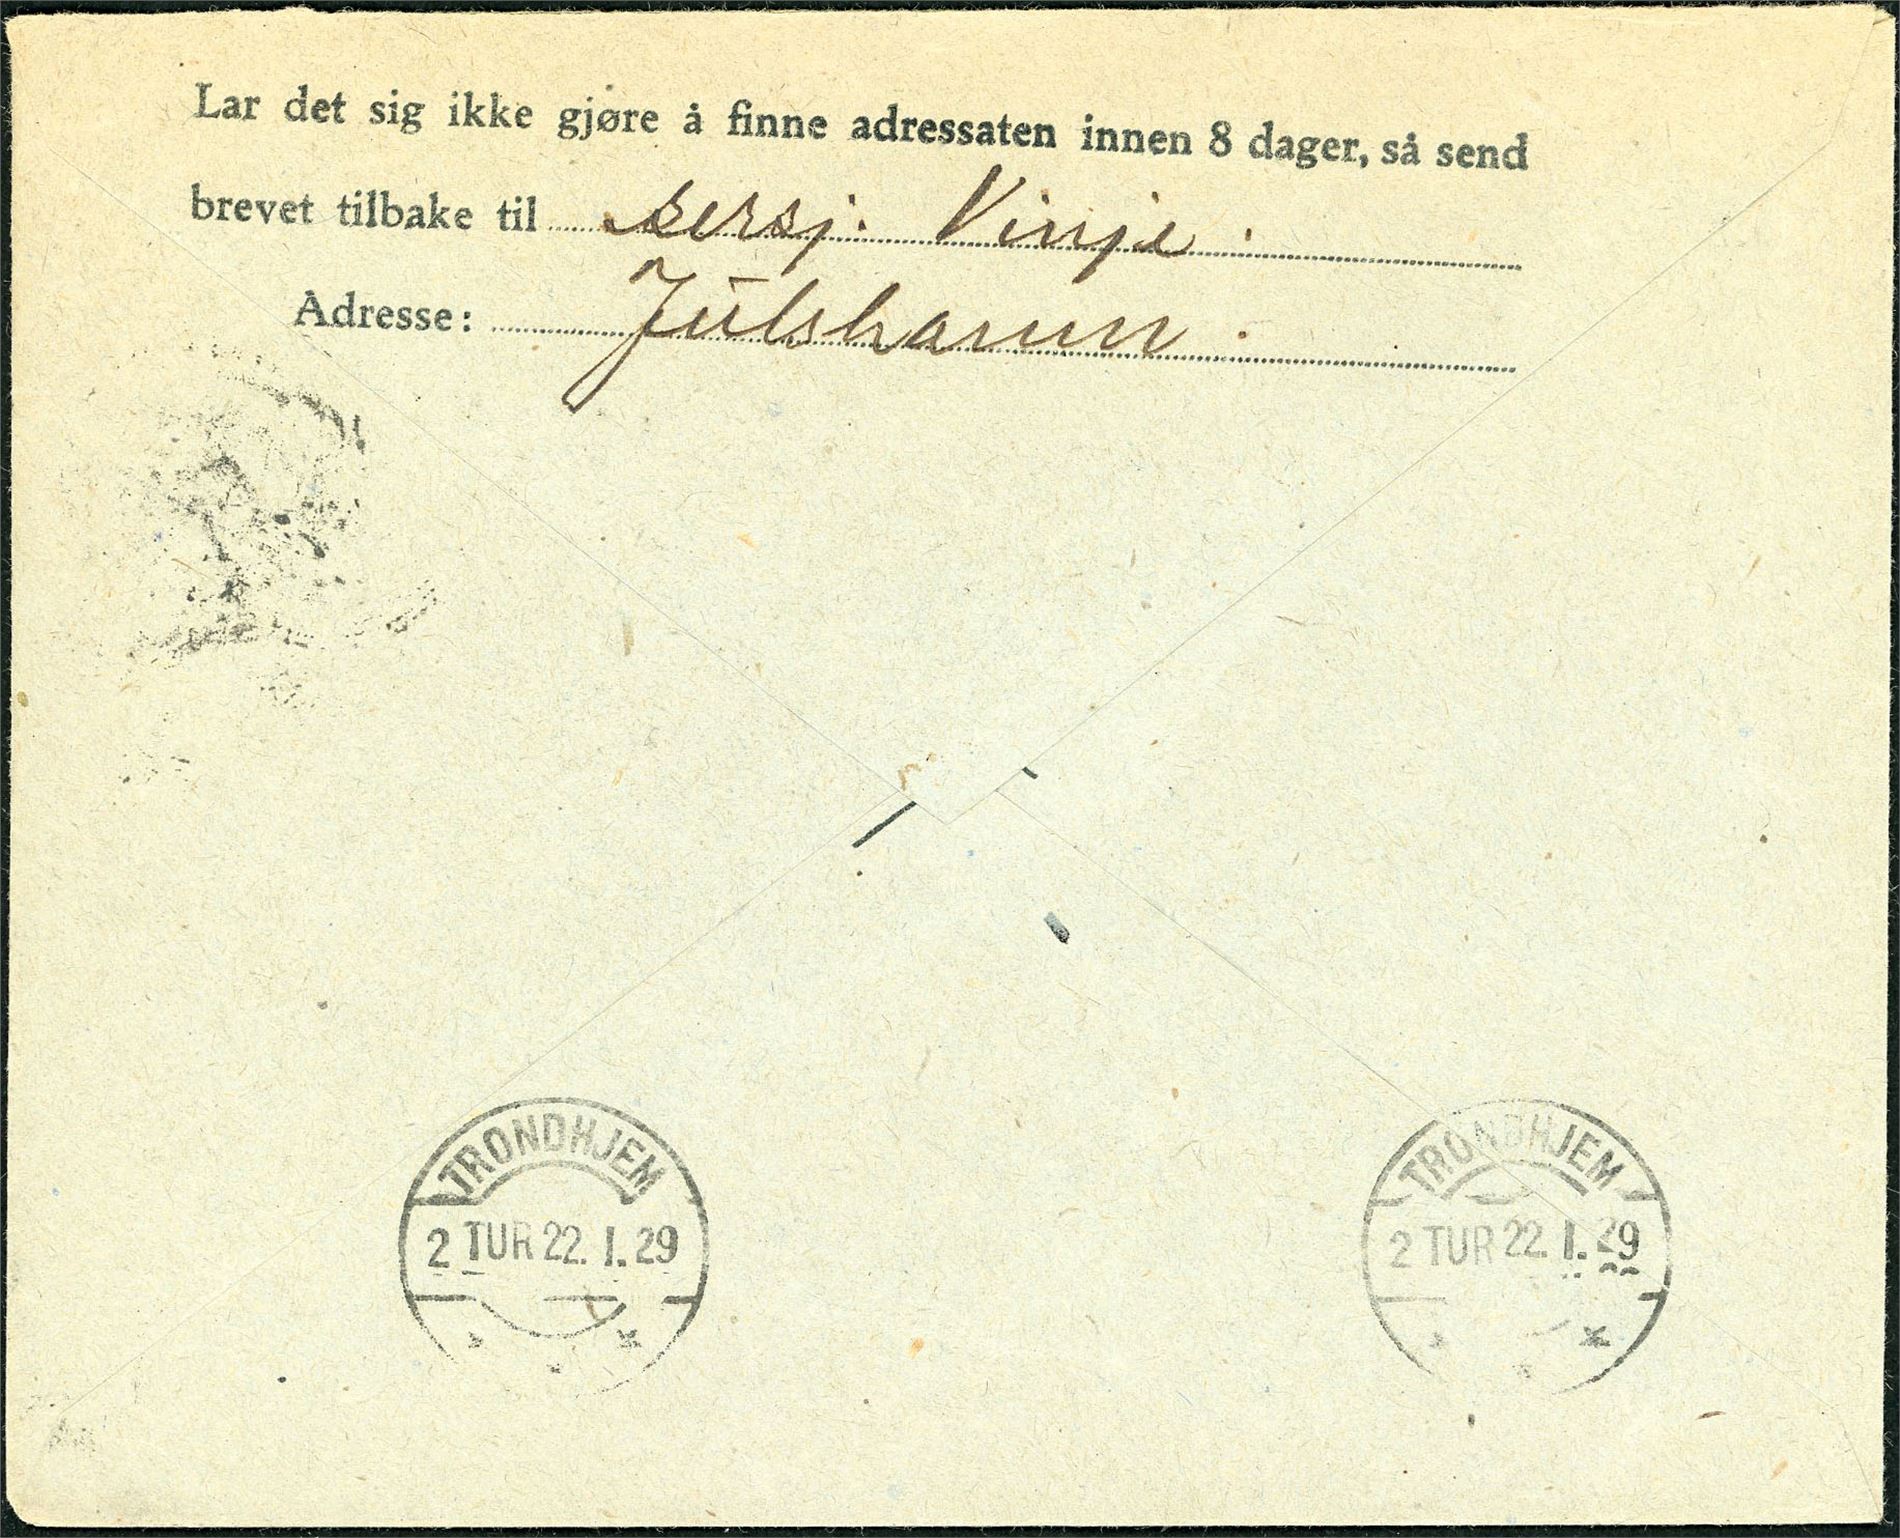 Lar det sig ikke gjøre å finne adressaten innen 8 dager, så send
brevet tilbake til sersj. Vinje.
Adresse: Julshamn.
TRONDHJEM
2 TUR 22. I. 29
TRONDHJEM
2 TUR 22. I. 29